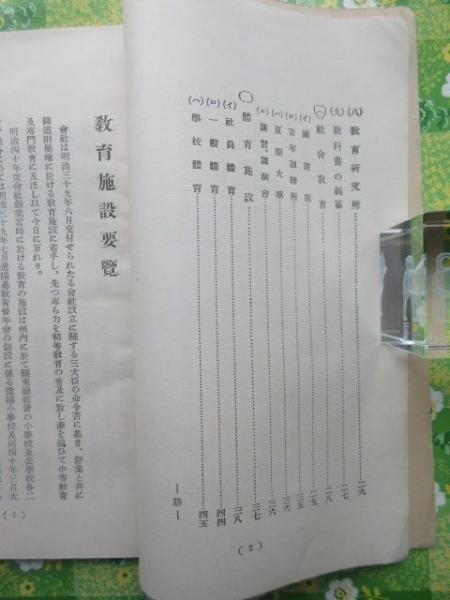 (八) 教育研究所 二六
(九) 教科書の編纂 二七
(一〇) 社會教育 二九
(イ) 圖書館 二九
(ロ) 青年訓練所 三五
(ハ) 夏期大學 三六
(ニ) 講習、講演會 三六
(一一) 體育施設 三七
(イ) 社員體育 三八
(ロ) 一般體育 四四
(ハ) 學校體育 四五
—(終)—
(2)
教育施設要覽
會社は明治三十九年八月交付せられたる會社設立に關する三大臣の命令書に基き、創業と共に
鐵道附屬地に於ける教育施設に着手し、先づ專ら力を初等教育の普及に致し漸を追ひて中等教育
及專門教育に及ほし以て今日に至れり。
明治四十年度會社創業當時に於ける教育の施設は州內に於て關東廳經營の小學校及公學校各二
三十九年七月遼陽基教青年會の創設に係る遼陽小學校及同四十年三月大
(1)